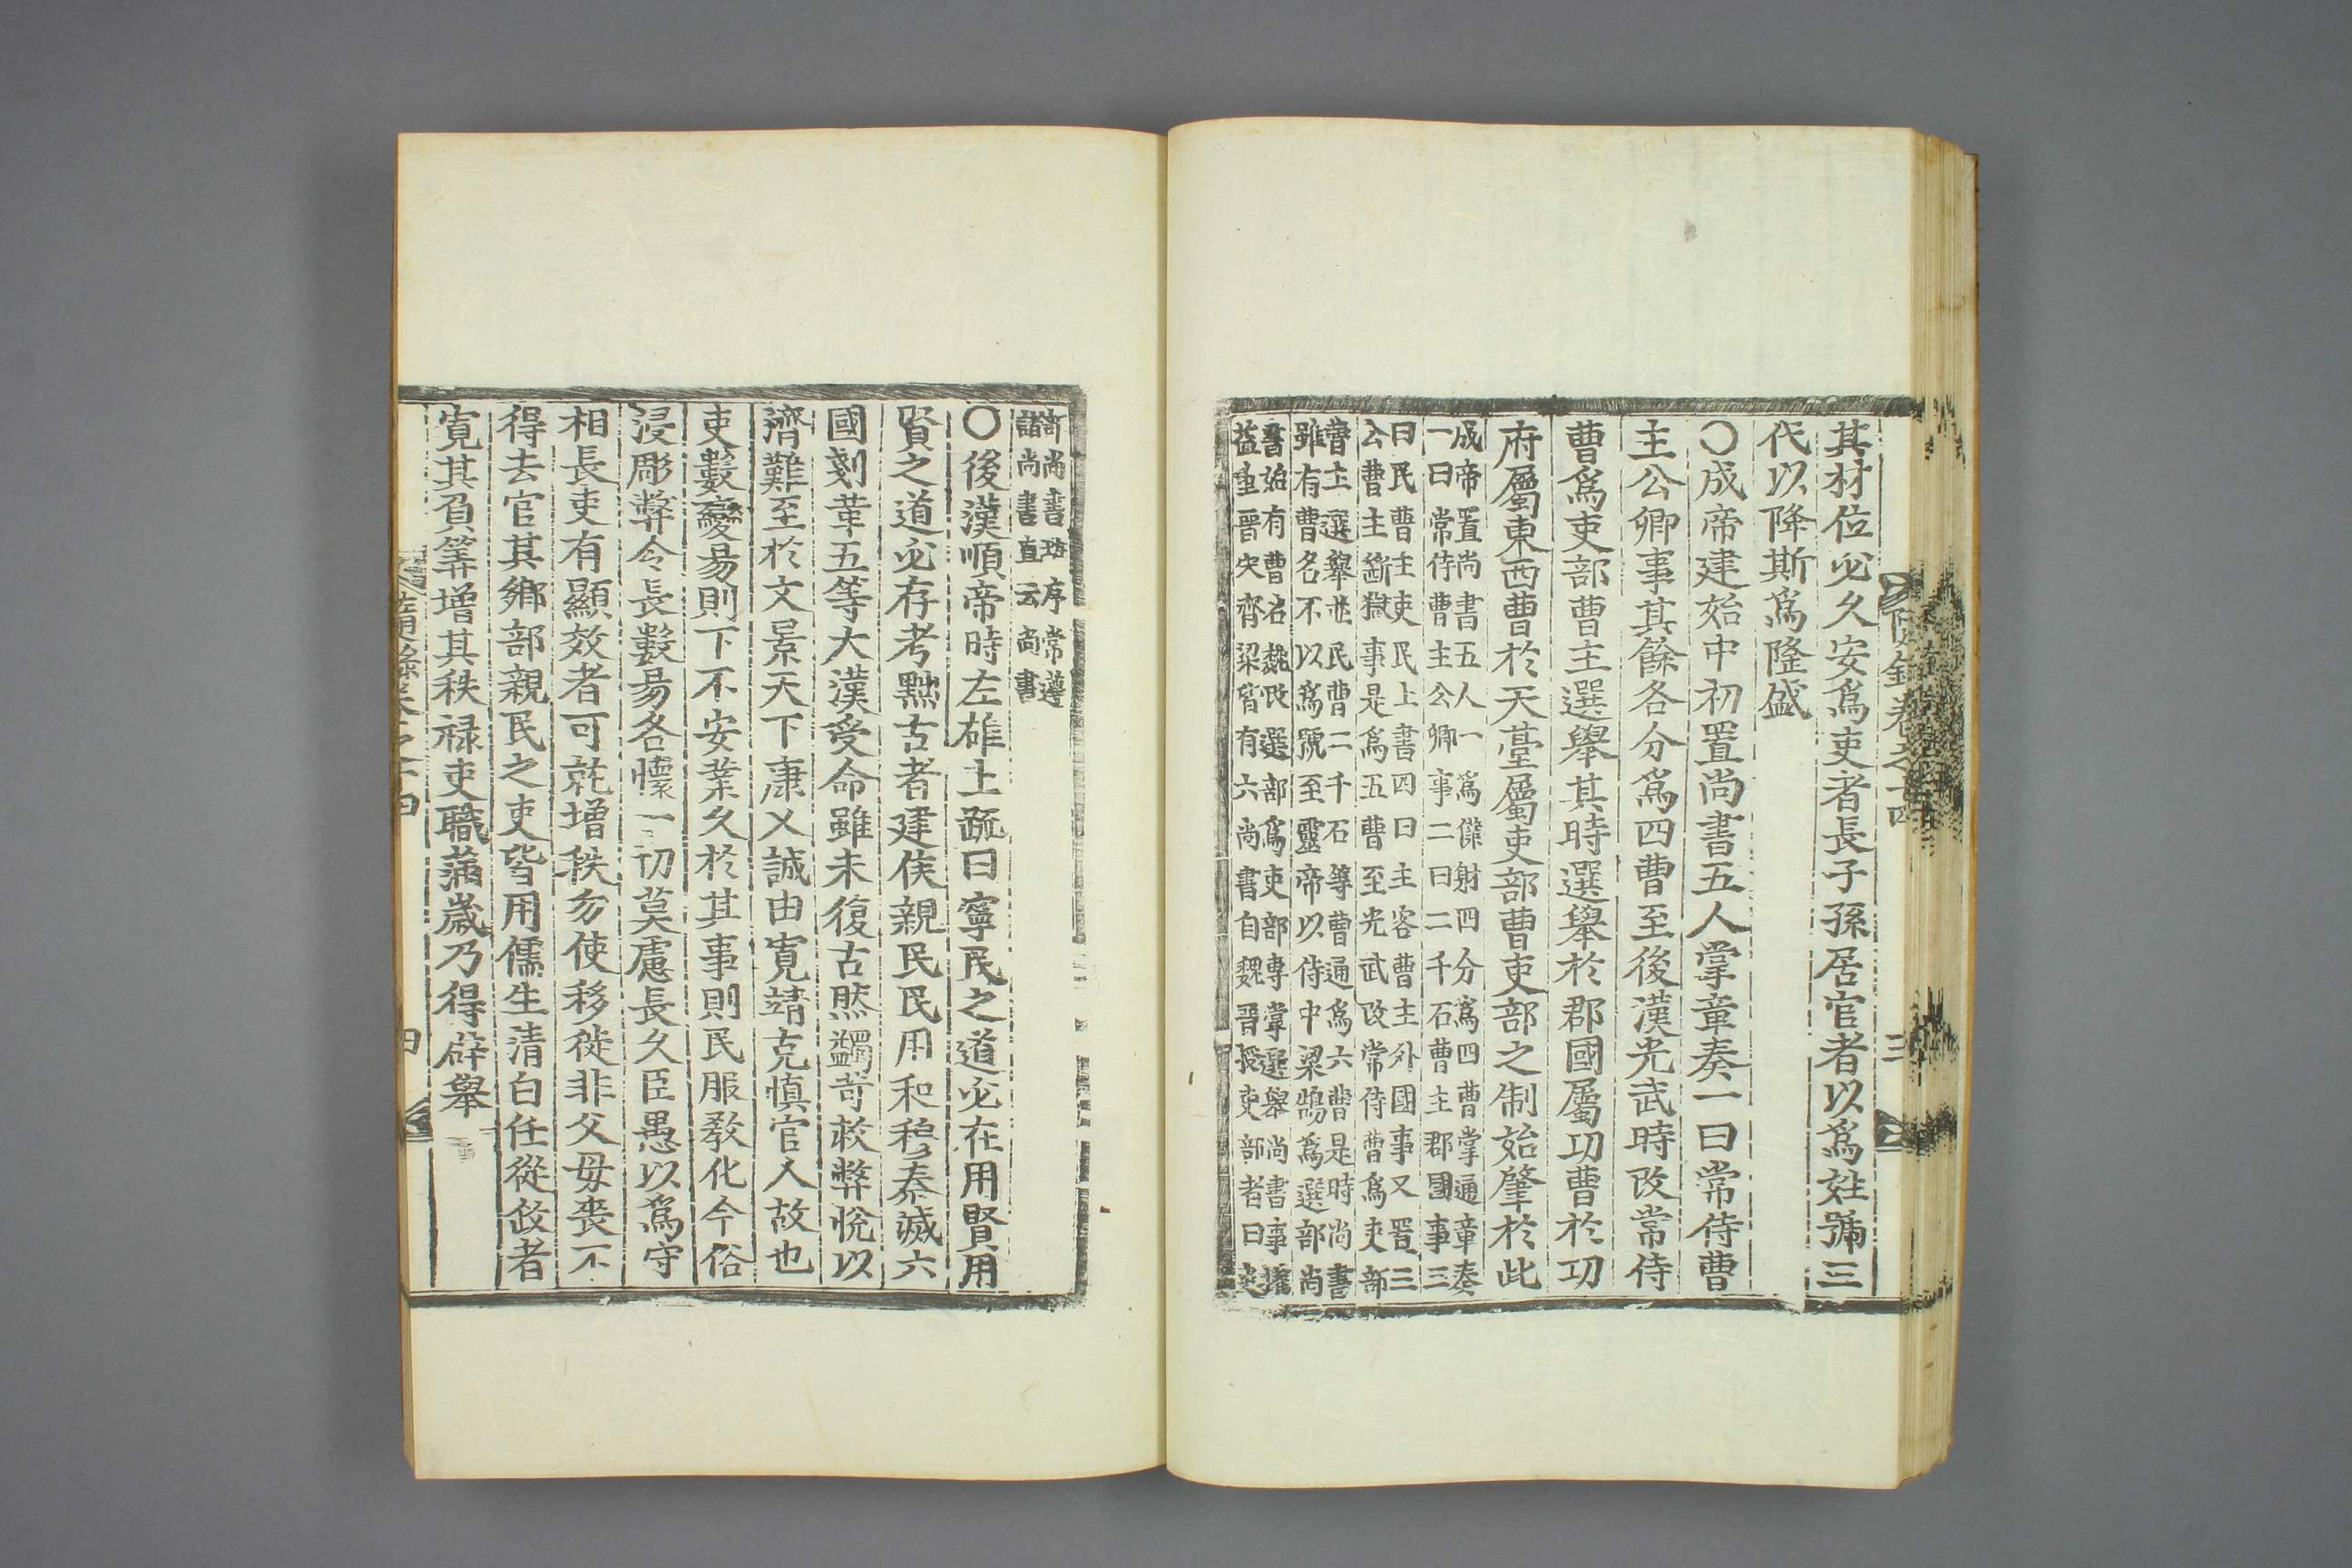 其材位必久安爲吏者長子孫居官者以爲姓號三
代以降斯爲隆盛
○成帝建始中初置尚書五人掌章奏一曰常侍曹
主公卿事其餘各分爲四曹至後漢光武時改常侍
曹爲吏部曹主選舉其時選舉於郡國屬功曹於功
府屬東西曹於天臺屬吏部曹吏部之制始肇於此
成帝置尚書五人一爲僕射四分爲四曹掌通章奏
一曰常侍曹主公卿事二曰二千石曹主郡國事三
曰民曹主吏民上書四曰主客曹主外國事又置三
公曹主斷獄事是爲五曹至光武改常侍曹爲吏部
曹主選舉並民曹二千石等曹通爲六曹是時尚書
雖有曹名不以爲號至靈帝以侍中梁鵠爲選部尚
書始有曹名魏改選部爲吏部專掌選舉尚書事
益重晉宋齊梁皆有六尚書自魏晉授吏部者曰
尚書 序常遵
諸尚書直云尚書
○後漢順帝時左雄上疏曰寧民之道必在用賢用
賢之道必存考黜古者建侯親民民用和穆秦滅六
國剗革五等大漢受命雖未復古然蠲苛救弊悅以
濟難至於文景天下康乂誠由寬靖克慎官人故也
吏數變易則下不安業久於其事則民服教化今俗
浸彫弊令長數易各懷一切莫慮長久臣愚以爲守
相長吏有顯效者可就增秩勿使移徙非父母喪不
得去官其鄉部親民之吏皆用儒生清白任從政者
寬其負筭增其秩祿吏職滿歲乃得辟舉
四